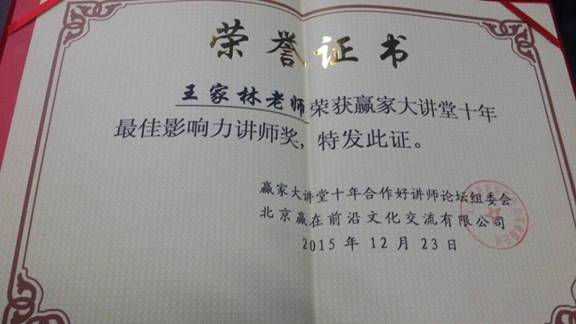 荣誉证书
王家林老师荣获赢家大讲堂十年
最佳影响力讲师奖，特发此证。
赢家大讲堂十年合作好讲师论坛组委会
北京赢在前沿文化交流有限公司
2015年12月23日